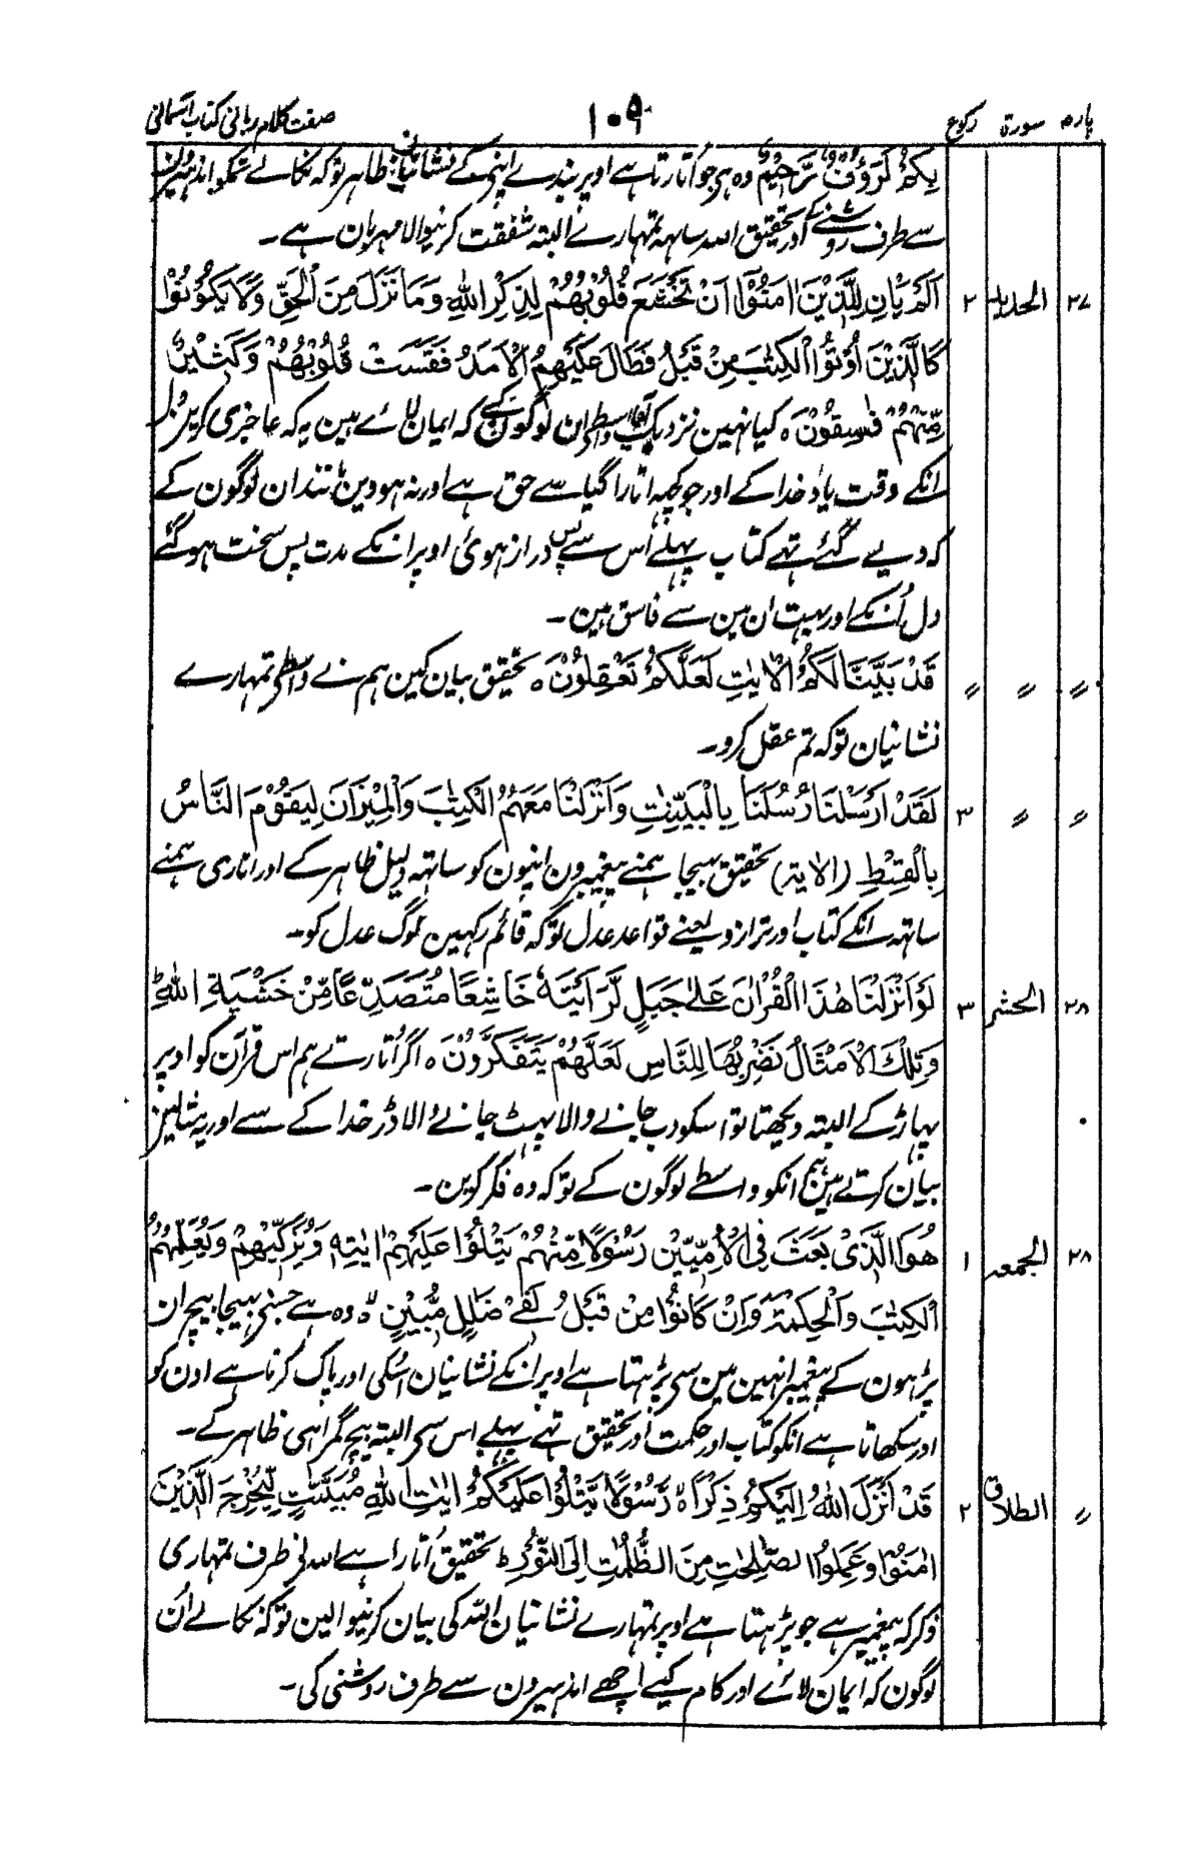 پارہ سورۃ رکوع ۱۰۹ صفت کلام ربانی کتاب آسمانی
بِكُمْ لَرَءُوْفٌ رَّحِيْمٌ وہ ہی جو اُتارتا ہے اوپر بندے اپنے کے نشانیاں ظاہر توکہ نکالے تمکو اندہیرون
سے طرف روشنی کے اور تحقیق اللہ ساتہہ تمہارے البتہ شفقت کرنیوالا مہربان ہے۔
۲۷ الحدید ۲ اَلَمْ يَاْنِ لِلَّذِيْنَ اٰمَنُوْٓا اَنْ تَخْشَعَ قُلُوْبُهُمْ لِذِكْرِ اللّٰهِ وَمَا نَزَلَ مِنَ الْحَقِّ وَلَا يَكُوْنُوْا
كَالَّذِيْنَ اُوْتُوا الْكِتٰبَ مِنْ قَبْلُ فَطَالَ عَلَيْهِمُ الْاَمَدُ فَقَسَتْ قُلُوْبُهُمْ وَكَثِيْرٌ
مِّنْهُمْ فٰسِقُوْنَ ہ کیا نہین نزدیک آیا واسطے ان لوگون کے کہ ایمان لائے ہین یہ کہ عاجزی کرین دل
انکے وقت یاد خدا کے اور جو کچہہ اتارا گیا سے حق ہے اور نہ ہووین مانند ان لوگون کے
کہ دیے گئے تہے کتاب پہلے اُس سے پس دراز ہوئی اوپر انکے مدت پس سخت ہوگئے
دل اُنکے اور بہت ان مین سے فاسق ہین۔
〃 〃 〃 قَدْ بَيَّنَّا لَكُمُ الْاٰيٰتِ لَعَلَّكُمْ تَعْقِلُوْنَ ہ تحقیق بیان کین ہم نے واسطے تمہارے
نشانیان توکہ تم عقل کرو۔
〃 〃 ۳ لَقَدْ اَرْسَلْنَا رُسُلَنَا بِالْبَيِّنٰتِ وَاَنْزَلْنَا مَعَهُمُ الْكِتٰبَ وَالْمِيْزَانَ لِيَقُوْمَ النَّاسُ
بِالْقِسْطِ (الاٰیۃ) تحقیق بہیجا ہمنے پیغمبرون اپنون کو ساتہہ دلیل ظاہر کے اور اتاری ہمنے
ساتہہ انکے کتاب اور ترازو یعنے قواعد عدل توکہ قائم رکہین لوگ عدل کو۔
۲۸ الحشر ۳ لَوْ اَنْزَلْنَا هٰذَا الْقُرْاٰنَ عَلٰى جَبَلٍ لَّرَاَيْتَهٗ خَاشِعًا مُّتَصَدِّعًا مِّنْ خَشْيَةِ اللّٰهِ ط
وَتِلْكَ الْاَمْثَالُ نَضْرِبُهَا لِلنَّاسِ لَعَلَّهُمْ يَتَفَكَّرُوْنَ ہ اگر اُتارتے ہم اس قرآن کو اوپر
پہاڑ کے البتہ دیکھتا تو اسکو دب جانے والا پہٹ جانے والا ڈر خدا کے سے اور یہ مثالین
بیان کرتے ہین ہم انکو واسطے لوگون کے توکہ وہ فکر کرین۔
۲۸ الجمعہ ۱ هُوَ الَّذِيْ بَعَثَ فِي الْاُمِّيّٖنَ رَسُوْلًا مِّنْهُمْ يَتْلُوْا عَلَيْهِمْ اٰيٰتِهٖ وَيُزَكِّيْهِمْ وَيُعَلِّمُهُمُ
الْكِتٰبَ وَالْحِكْمَةَ وَاِنْ كَانُوْا مِنْ قَبْلُ لَفِيْ ضَلٰلٍ مُّبِيْنٍ ہ وہ ہے جسنے بہیجا بیچ ان
پڑہون کے پیغمبر انہین مین سی پڑہتا ہے اوپر انکے نشانیان اسکی اور پاک کرتا ہے اون کو
اور سکھاتا ہے انکو کتاب اور حکمت اور تحقیق تہے پہلے اس سی البتہ بیچ گمراہی ظاہر کے۔
〃 الطلاق ۲ قَدْ اَنْزَلَ اللّٰهُ اِلَيْكُمْ ذِكْرًا ہ رَّسُوْلًا يَّتْلُوْا عَلَيْكُمْ اٰيٰتِ اللّٰهِ مُبَيِّنٰتٍ لِّيُخْرِجَ الَّذِيْنَ
اٰمَنُوْا وَعَمِلُوا الصّٰلِحٰتِ مِنَ الظُّلُمٰتِ اِلَى النُّوْرِ ط تحقیق اُتارا ہے اللہ نے طرف تمہاری
ذکر کہ پیغمبر ہے جو پڑہتا ہے اوپر تمہارے نشانیان اللہ کی بیان کرنیوالین توکہ نکالے اُن
لوگون کہ ایمان لائے اور کام کیے اچھے اندہیرون سے طرف روشنی کی۔